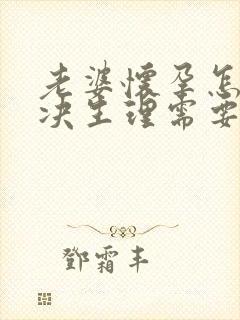 老婆懷孕怎
决生理需要
鄧霜丰